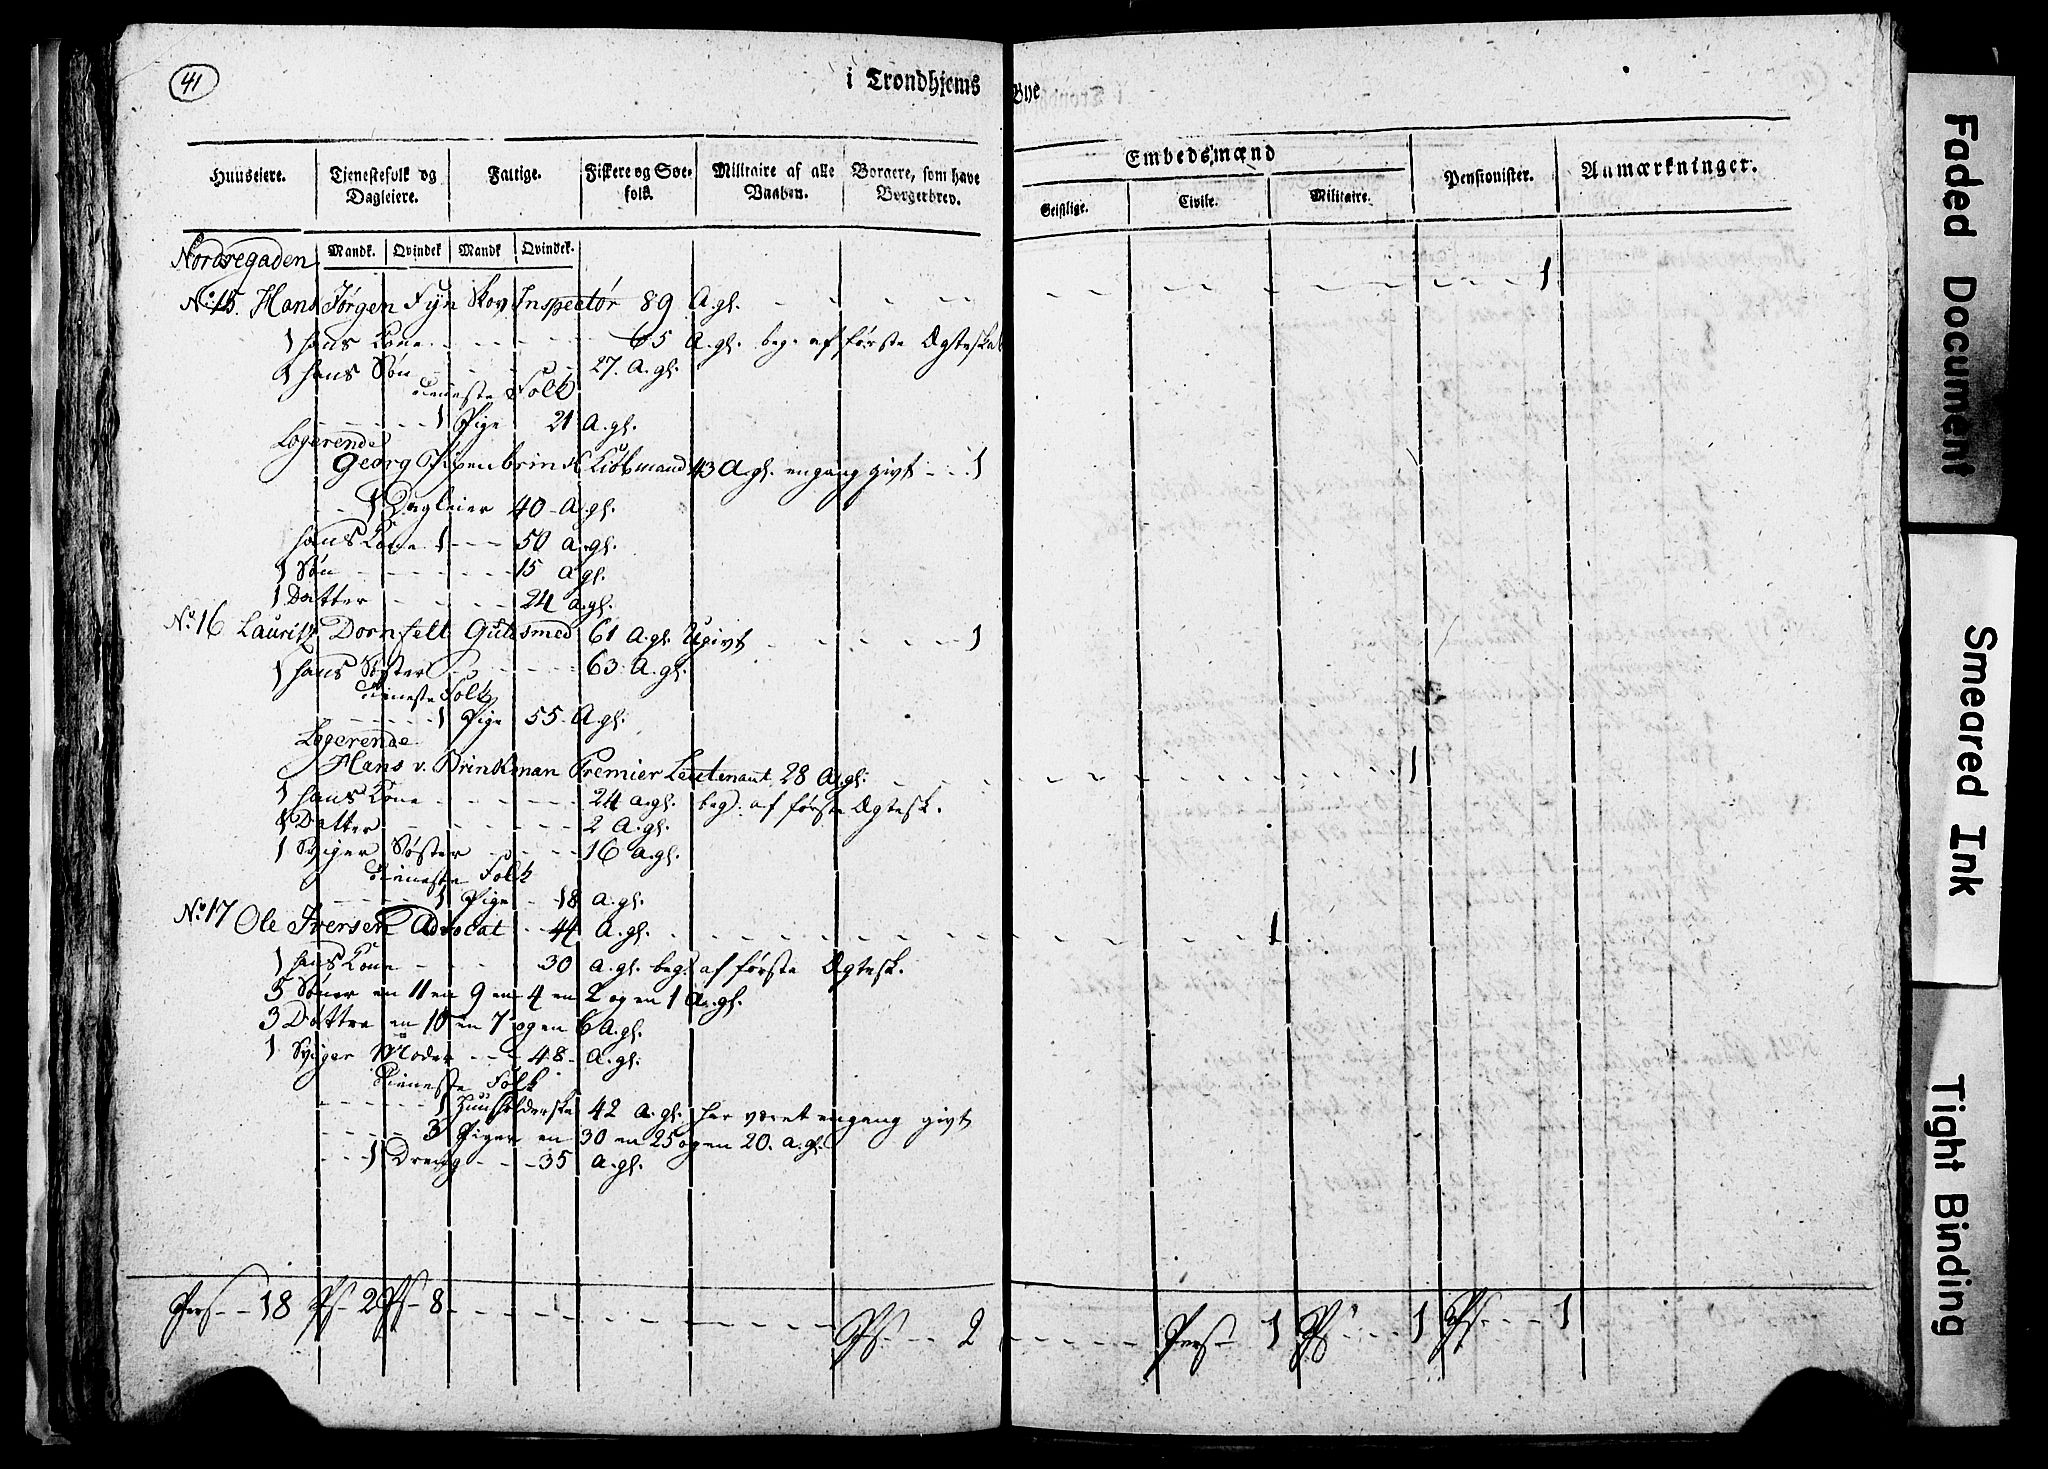 41
i Trondhjems Bye
Huuseiere. Tjenestefolk og Dagleiere. Fattige. Fiskere og Søefolk. Militaire af alle Vaaben. Borgere, som have Borgerbrev. Embedsmænd Pensionister. Anmærkninger.
Geistlige. Civile. Militaire.
Mandk. Qvindek Mandk Qvindek.
Nordregaden
No. 15. Hans Jørgen Fyn Skov Inspectør 89 A. gl. 1
1 hans Kone 65 A. gl. beg. af første Ægteskab
1 hans Søn 27. A. gl.
Tieneste Folk
1 Pige 21 A. gl.
Logerende
Georg Pipenbrink Kiøbmand 43 A gl. engang givt 1
1 Dagleier 40 A. gl.
hans Kone 1 50 A. gl.
1 Søn 15 A gl.
1 Datter 24 A. gl.
No. 16 Lauritz Dornfelt Guldsmed 61 A. gl. Ugivt 1
1 hans Søster 63. A. gl.
Tieneste Folk
1 Pige 55 A. gl.
Logerende
Hans v. Brinkman Premier Leutenant 28 A. gl. 1
1 hans Kone 24 A. gl. beg. af første Ægtesk.
1 Datter 2 A. gl.
1 Sviger Søster 16 A. gl.
Tieneste Folk
1 Pige 18 A. gl.
No. 17 Ole Iversen Advocat 44 A. gl. 1
1 hans Kone 30 A. gl. beg. af første Ægtesk.
5 Sønner en 11 en 9 en 4 en 2 og en 1 A. gl.
3 Døttre en 10 en 7 og en 6 A. gl.
1 Sviger Moder 48 A. gl.
Tieneste Folk
1 Huusholderske 42 A. gl. har været engang givt
3 Piger en 30 en 25 og en 20. A. gl.
1 Dreng 35 A. gl.
Pers 18 Ps 2 Ps 8 Ps 2 Pers 1 Ps 1 Ps 1
Faded Document
Smeared Ink
Tight Binding